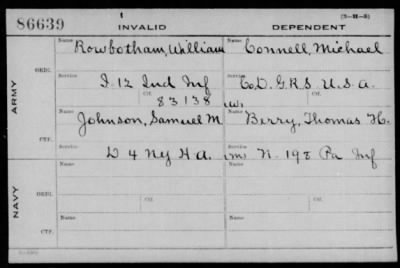 86639
INVALID
DEPENDENT
(3-M-3)
Name Rowbotham, William
Name Connell, Michael
ARMY
ORIG.
Service I-12 Ind Inf
Service Co D. G.R.S. U.S.A.
Ctf. 83138
Ctf. (W)
CTF.
Name Johnson, Samuel M
Name Berry, Thomas H.
Service D 4 Ny H a.
Service (m) N. 198 Pa Inf
NAVY
ORIG.
Name
Ctf.
Name
Ctf.
CTF.
Name
Name